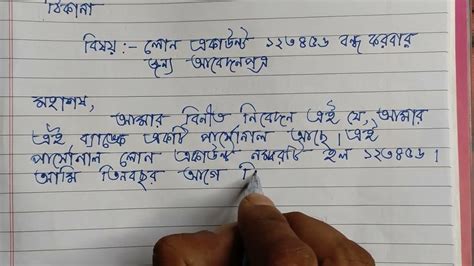 ঠিকানা
বিষয় :- লোন একাউন্ট ১২৩৪৫৬ বন্ধ করবার
জন্য আবেদনপত্র
মহাশয়,
আমার বিনীত নিবেদন এই যে, আমার
এই ব্যাঙ্কে একটি পার্সোনাল আছে। এই
পার্সোনাল লোন একাউন্ট নম্বরটি হল ১২৩৪৫৬।
আমি তিনবছর আগে